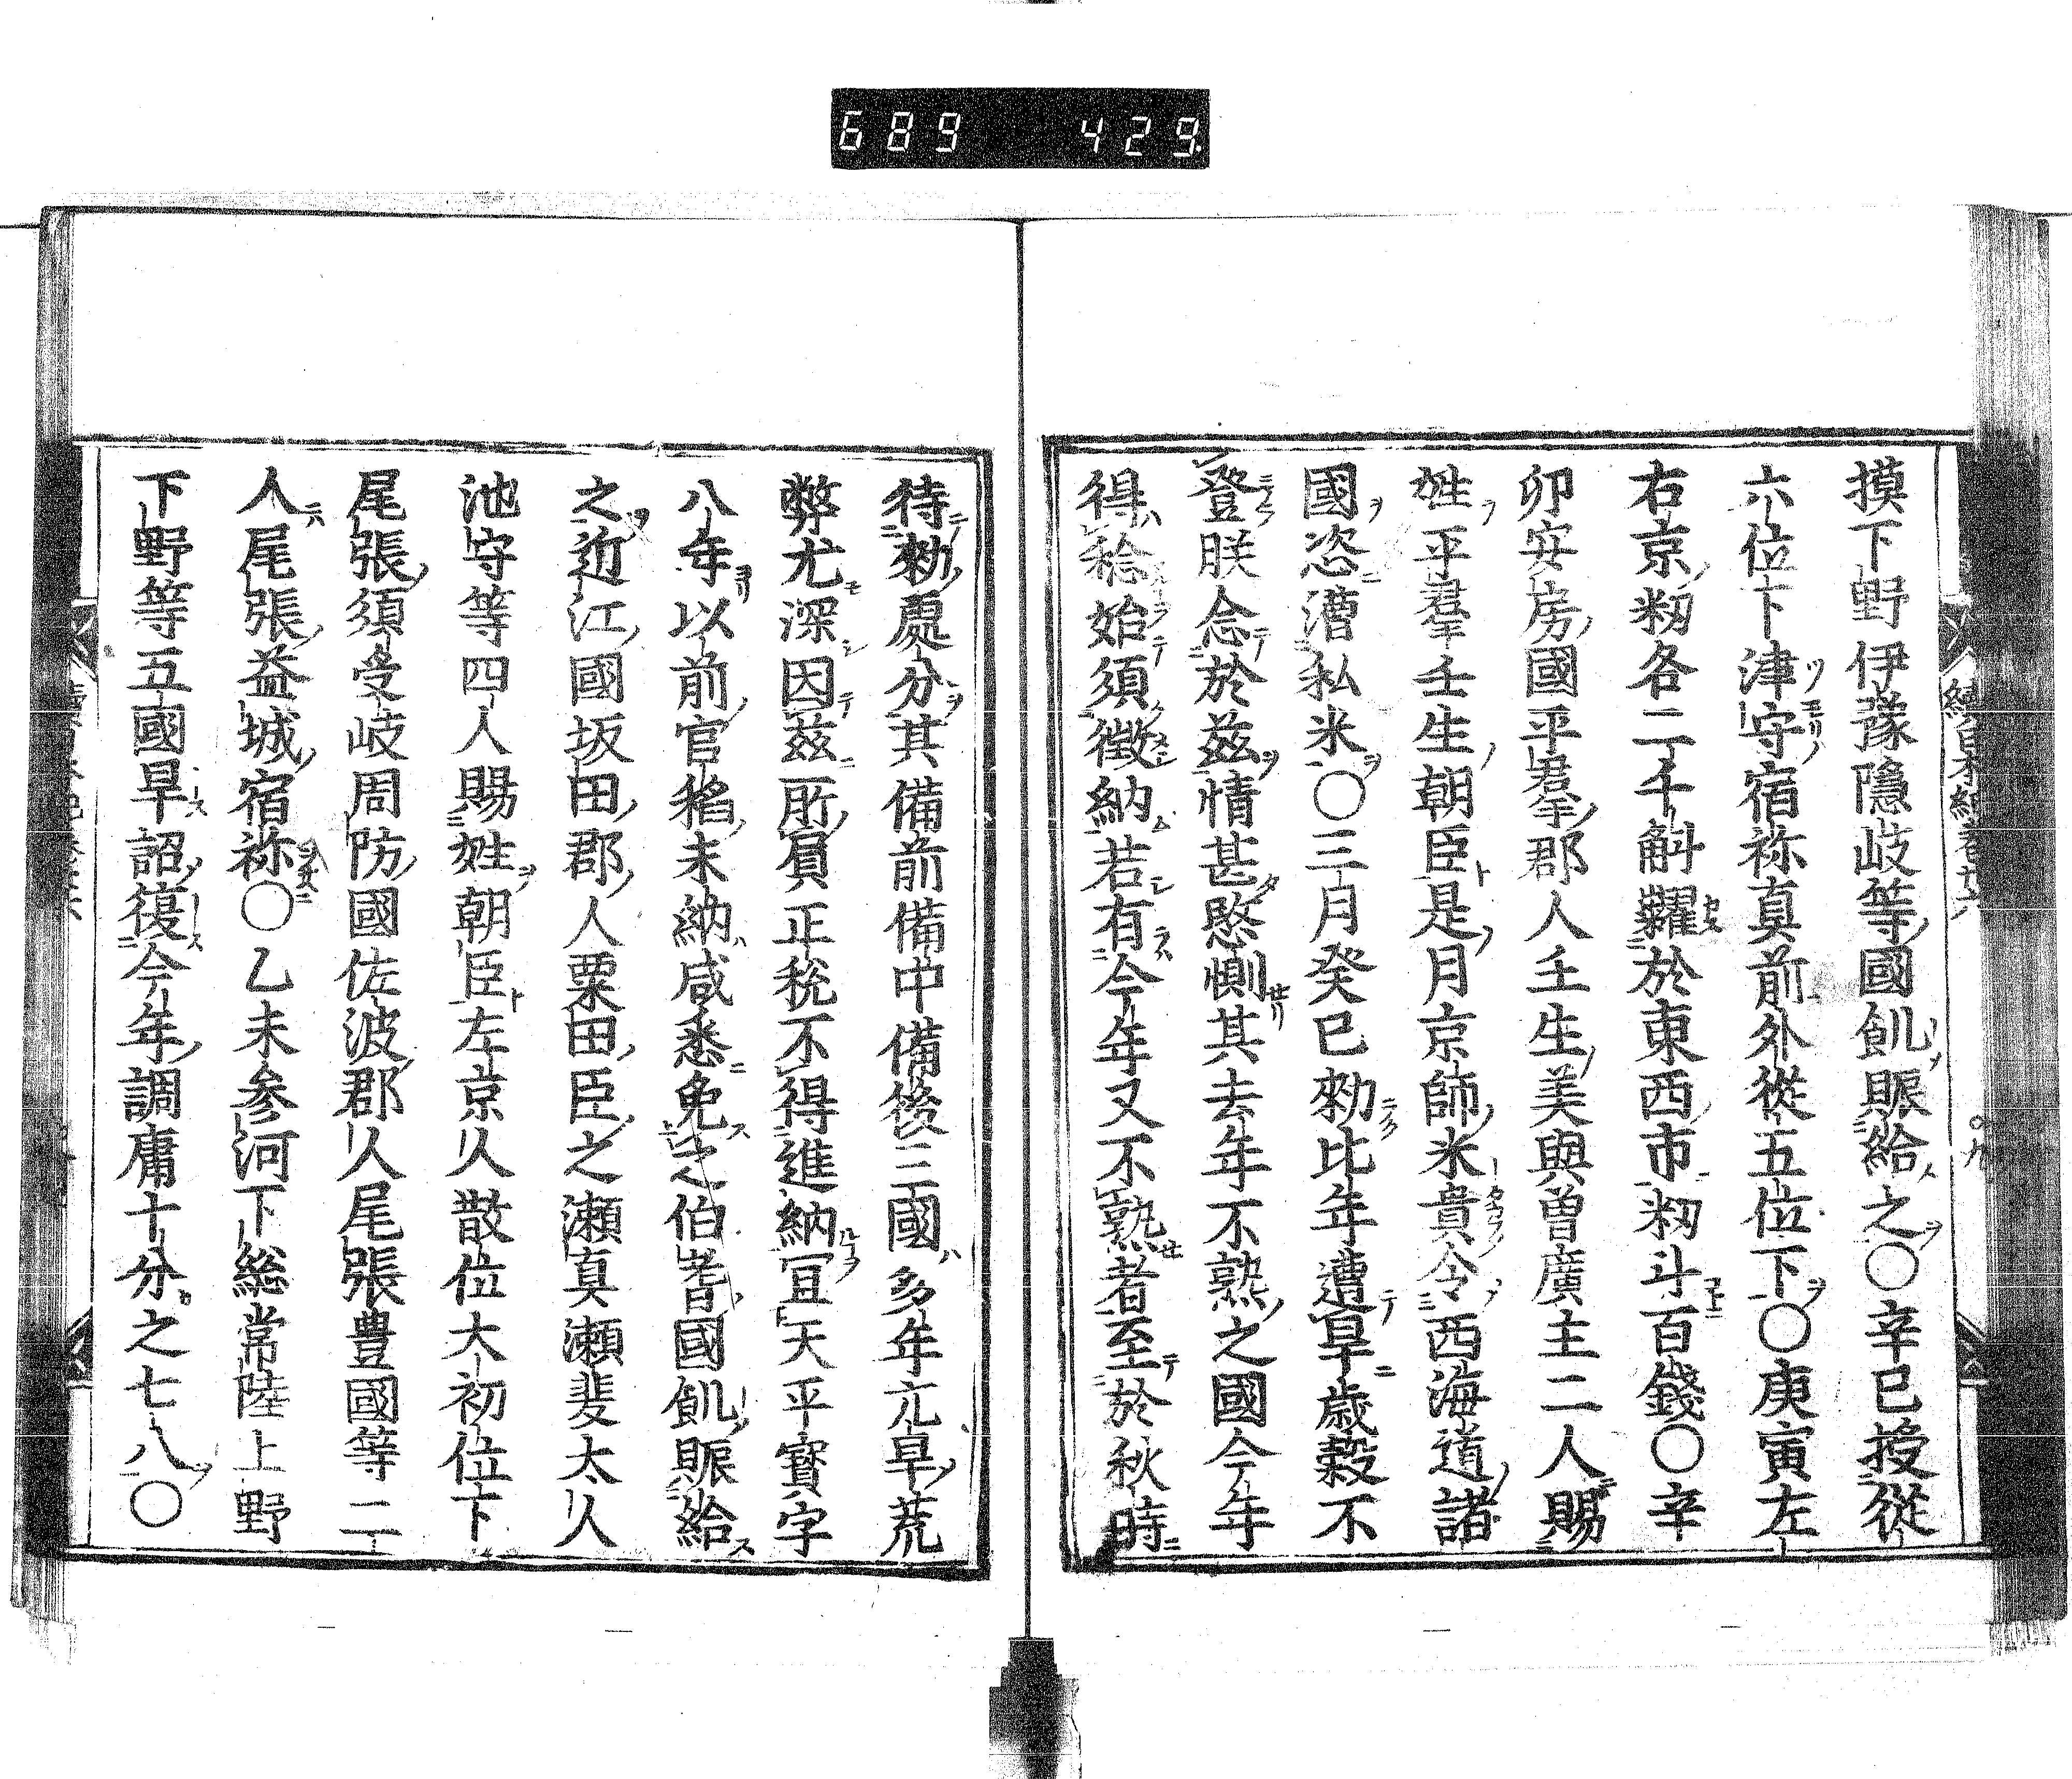 689 429.
摸下野伊豫隱岐等國飢賑給之○辛巳授從
六位下津守宿祢真前外從五位下○庚寅左
右京籾各二千斛糶於東西市籾斗百錢○辛
卯安房國平羣郡人壬生美與曽廣主二人賜
姓平羣壬生朝臣是月京師米貴令西海道諸
國恣漕私米○三月癸巳勑比年遭旱歳穀不
登朕念於兹情甚愍惻其去年不熟之國今年
得稔始須徴納若有今年又不熟者至於秋時
待勑處分其備前備中備後三國多年亢旱荒
弊尤深因兹所負正税不得進納冝天平寳字
八年以前官稲未納咸悉免之伯耆國飢賑給
之近江國坂田郡人粟田臣之瀬真瀬斐太人
池守等四人賜姓朝臣左京人散位大初位下
尾張須受岐周防國佐波郡人尾張豊國等二
人尾張益城宿祢○乙未参河下総常陸上野
下野等五國旱詔復今年調庸十分之七八○